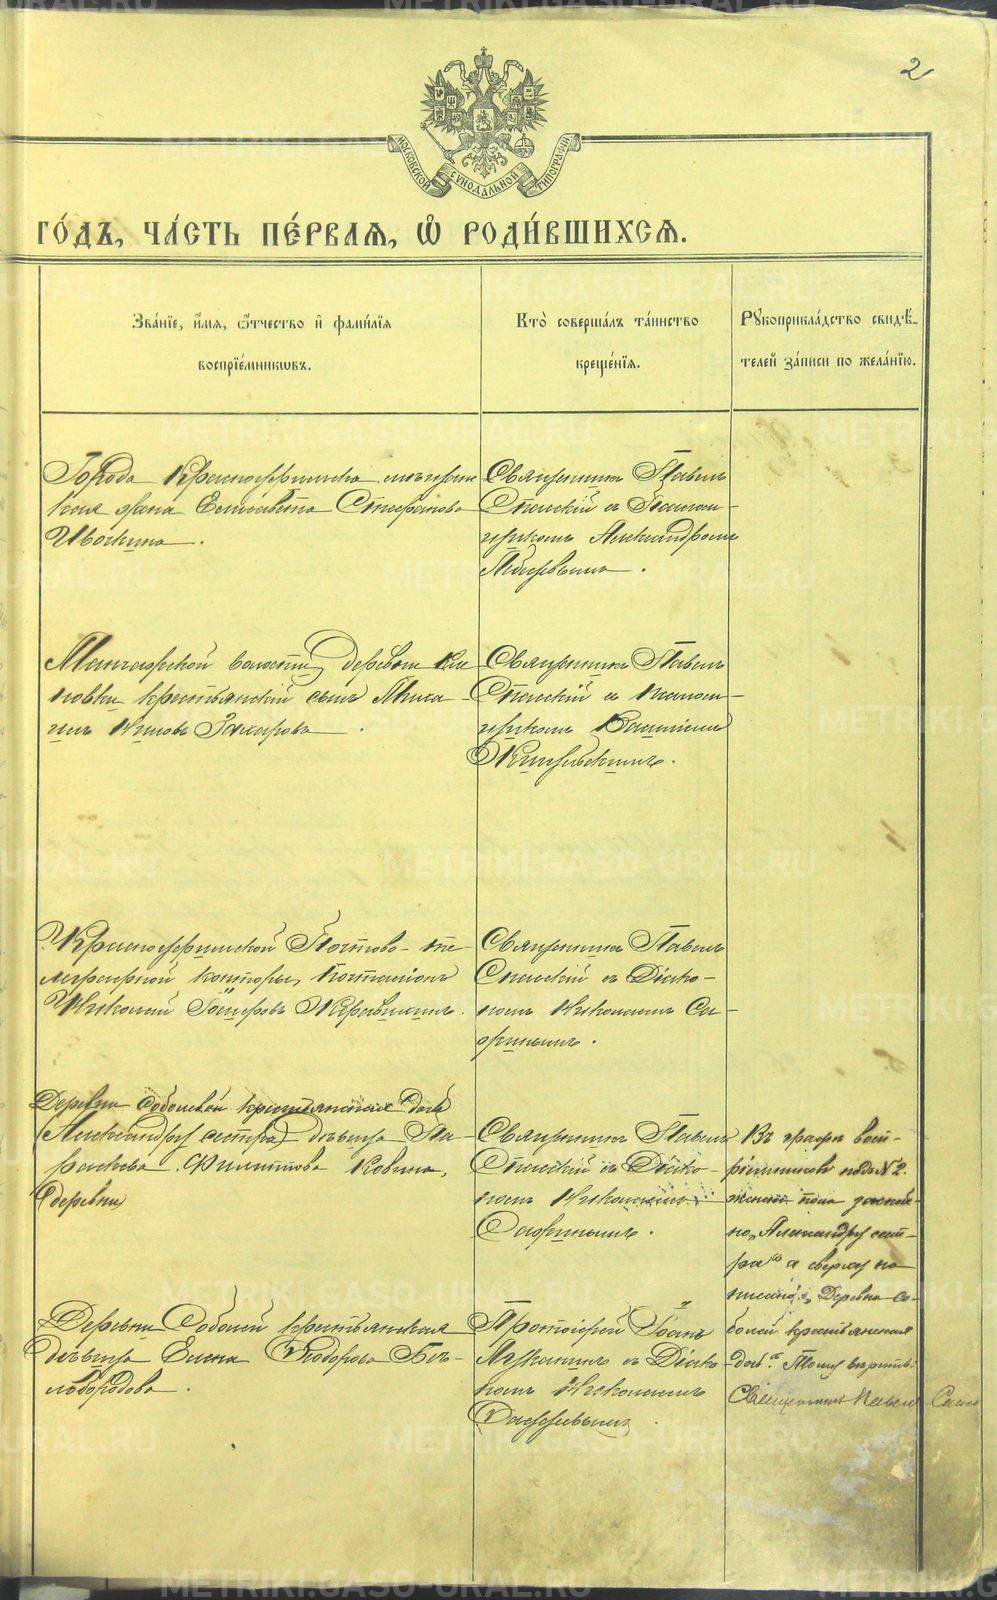 2
МОСКОВСКОЙ СѴНОДАЛЬНОЙ ТИПОГРАФІИ
ГО́ДЪ, ЧА́СТЬ ПЕ́РВАЯ, Ѽ РОДИ́ВШИХСЯ.
Зва́нїе, и҆́мя, ѻ҆́тчество и҆ фами́лїя
воспрїе́мникѡвъ.
Кто̀ соверша́лъ та́инство
креще́нїя.
Рꙋкоприкла́дство свидѣ́-
телей за́писи по жела́нїю.
Города Красноуфимска мѣщан
ская жена Елисавета Стефанова
Ивокина.
Священникъ Павелъ
Спасскій съ Псалом-
щикомъ Александромъ
волости, деревни Кли
новки крестьянскій сынъ Миха
илъ Захаровъ
Священникъ Павелъ
Спасскій съ псалом-
щикомъ Василіемъ
Красноуфимской Почтово-те-
леграфной конторы, почталіонъ
Николай Журавлевъ.
Священникъ Павелъ
Спасскій съ Діако-
номъ Николаемъ Са-
фриныхъ.
Деревни Соболевой крестьянская дочь
(Александру сестра) дѣвица Па-
раскева Филиппова
(деревни)
Священникъ Павелъ
Спасскій съ Діако-
номъ Николаемъ
Въ графѣ вост-
пріемниковъ подъ № 2.
женска пола
но „Александру сест-
ра“ а сверху на
писано: „Деревни Со-
болей крестьянская
дочь“. Тому вѣрить.
Священникъ Павелъ Спас
Деревни Соболей крестьянская
дѣвица Елена Ѳеодорова Бѣ-
лобородова.
Протоіерей Іоаннъ
Луканинъ съ Діако
номъ Николаемъ